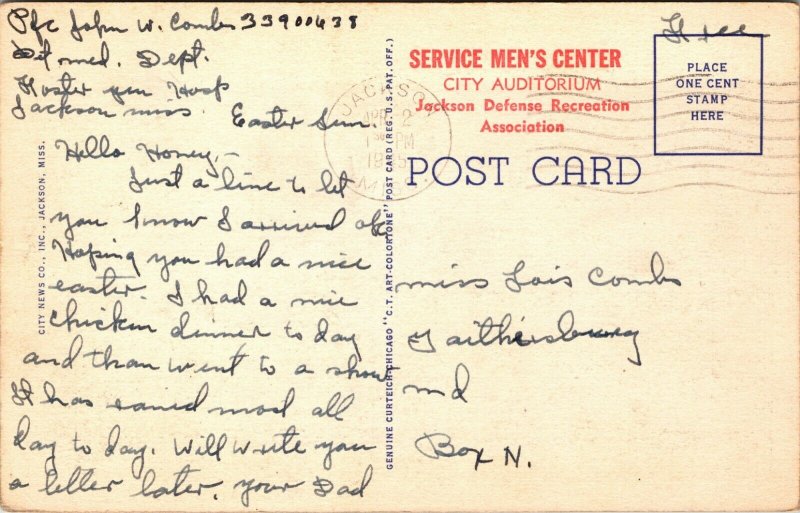 Pfc John W. Combs 33900638
Det med. Dept.
Foster Gen Hosp
Jackson miss
Easter Sun.
Hello Honey,-
Just a line to let
you know I arrived ok
Hoping you had a nice
easter. I had a nice
chicken dinner to day
and than went to a show
It has rained most all
day to day. Will write you
a letter later. your Dad
CITY NEWS CO., INC., JACKSON, MISS.
GENUINE CURTEICH-CHICAGO "C.T. ART-COLORTONE" POST CARD (REG. U.S. PAT. OFF.)
JACKSON
APR 2
PM
MISS.
SERVICE MEN'S CENTER
CITY AUDITORIUM
Jackson Defense Recreation
Association
Free
PLACE
ONE CENT
STAMP
HERE
POST CARD
miss Lois Combs
Gaithersburg
md
Box N.